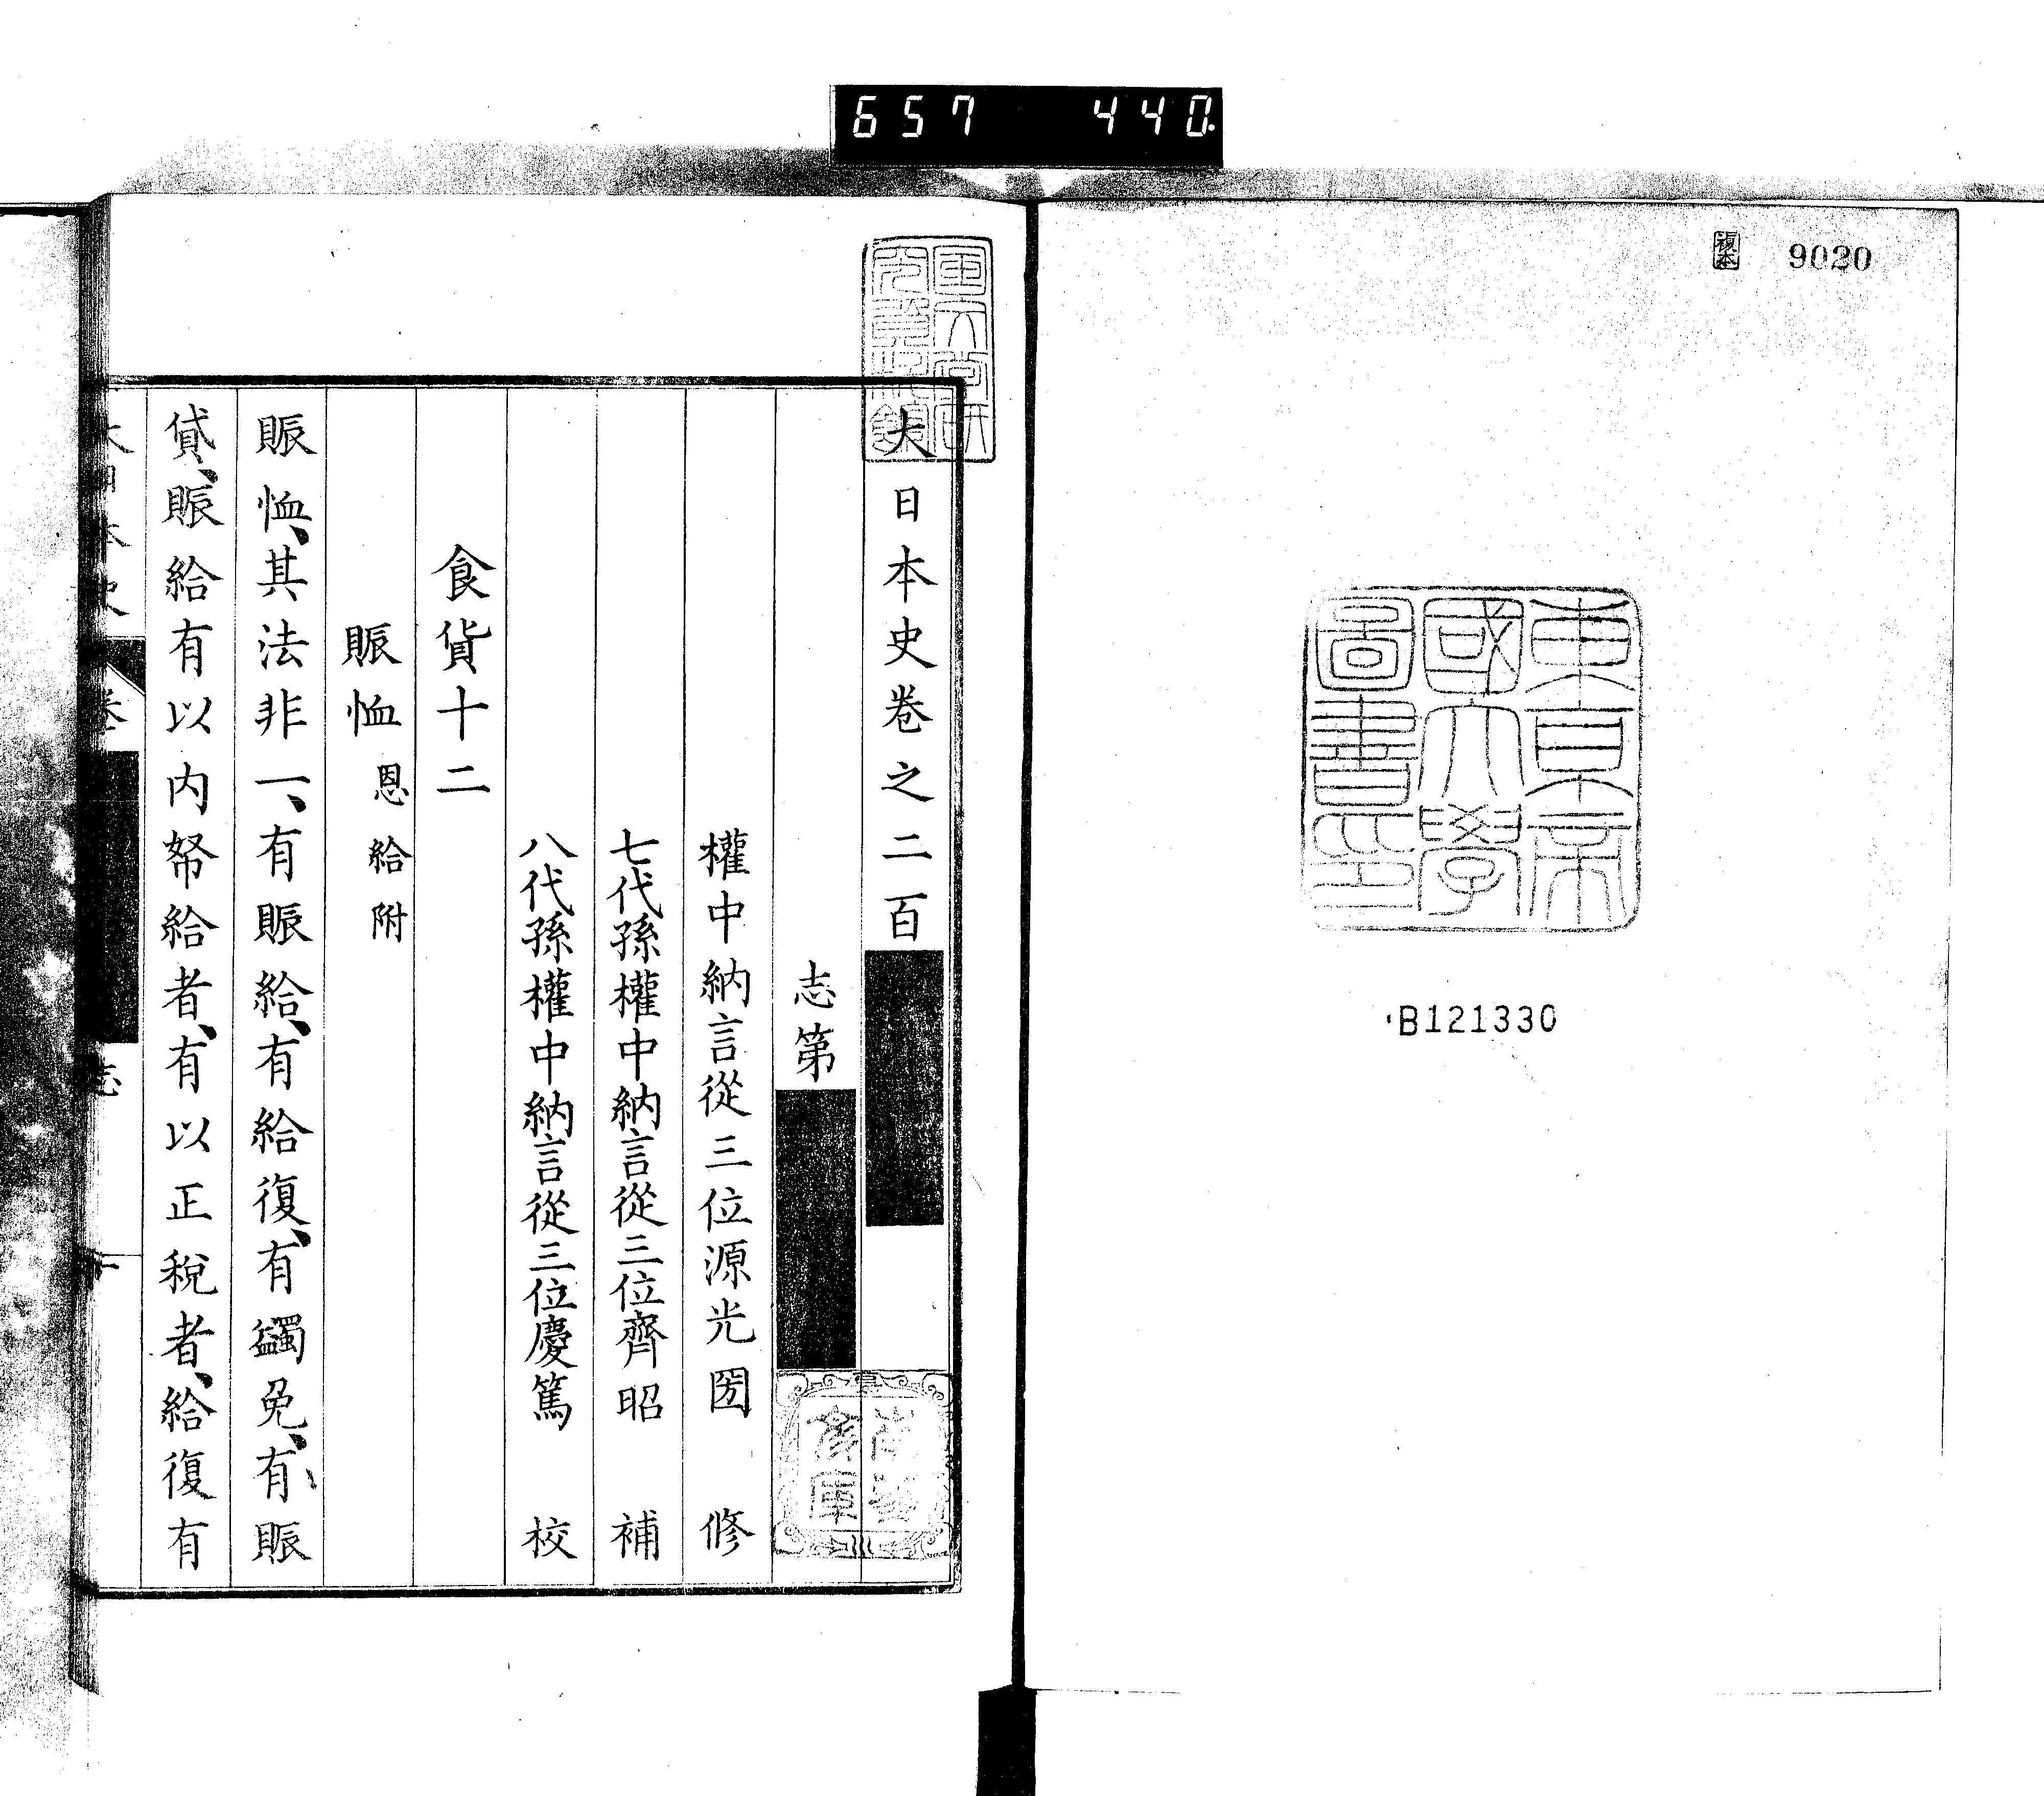 657 440.
複本
9020
東京帝
國大學
圖書印
B121330
大日本史卷之二百
志第
權中納言從三位源光圀 修
七代孫權中納言從三位齊昭 補
八代孫權中納言從三位慶篤 校
食貨十二
賑恤 恩給附
賑恤、其法非一、有賑給、有給復、有蠲免、有賑
貸、賑給有以内帑給者、有以正稅者、給復有
大日本史 卷 志 一